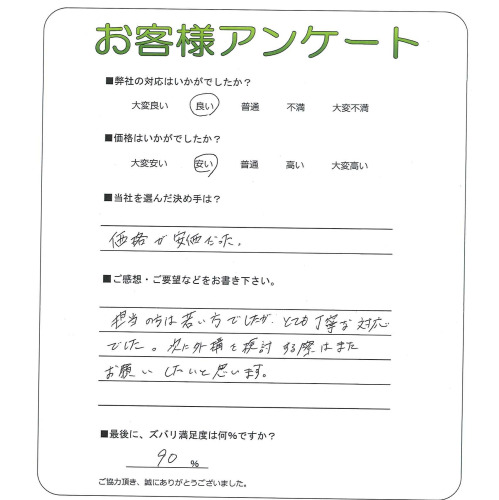 お客様アンケート
■弊社の対応はいかがでしたか？
大変良い 良い 普通 不満 大変不満
■価格はいかがでしたか？
大変安い 安い 普通 高い 大変高い
■当社を選んだ決め手は？
価格が安価だった。
■ご感想・ご要望などをお書き下さい。
担当の方は若い方でしたが、とても丁寧な対応
でした。次に外構を検討する際はまた
お願いしたいと思います。
■最後に、ズバリ満足度は何％ですか？
90 %
ご協力頂き、誠にありがとうございました。